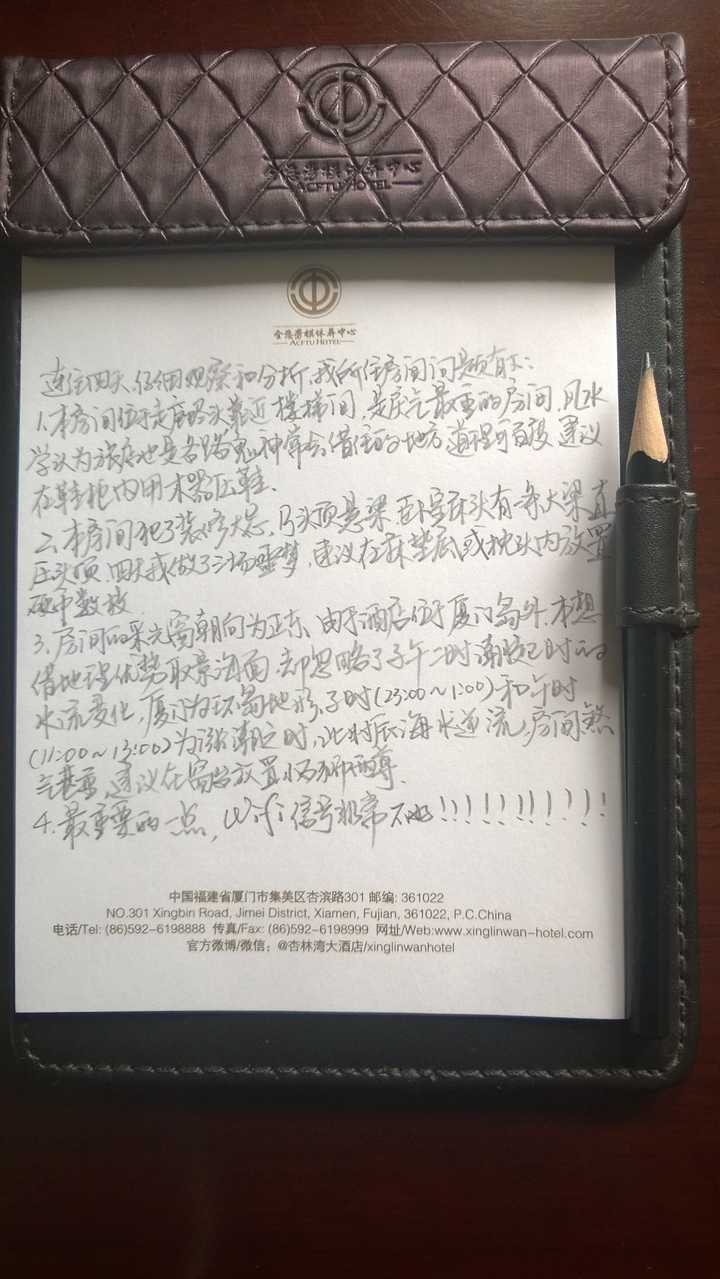 全总劳模休养中心
ACFTU HOTEL
全总劳模休养中心
ACFTU HOTEL
连住四天,仔细观察和分析,我所住房间问题有下:
1.本房间位于走廊路头靠近楼梯间,是戾气最重的房间,风水
学认为旅店也是各路鬼神常去借住的地方,道理可百度,建议
在鞋柜内用木器压鞋.
2.本房间犯了装修大忌,乃头顶悬梁,卧室床头有一条大梁直
压头顶,四天我做了三场噩梦,建议在床垫底或枕头内放置
硬币数枚.
3.房间的采光窗朝向为正东,由于酒店位于厦门岛外,本想
借地理优势取景海面,却忽略了子午二时潮汐之时的
水流变化,厦门为环岛地形,子时(23:00~1:00)和午时
(11:00~13:00)为涨潮之时,此时辰海水逆流,房间煞
气甚重,建议在窗台放置小石狮两尊.
4.最重要的一点,Wifi信号非常不好!!!!!!!!!!
中国福建省厦门市集美区杏滨路301 邮编: 361022
NO.301 Xingbin Road, Jimei District, Xiamen, Fujian, 361022, P.C.China
电话/Tel: (86)592-6198888 传真/Fax: (86)592-6198999 网址/Web:www.xinglinwan-hotel.com
官方微博/微信: @杏林湾大酒店/xinglinwanhotel